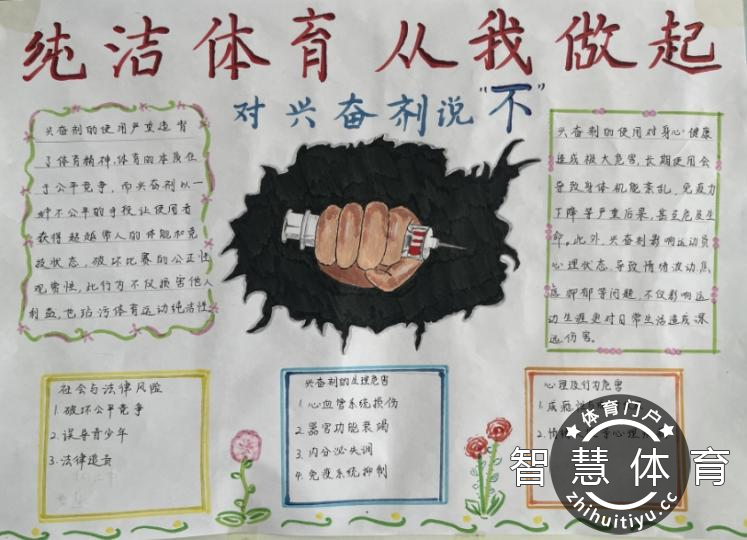 纯洁体育 从我做起
对兴奋剂说"不"
兴奋剂的使用严重违背
了体育精神,体育的本质在
于公平竞争,而兴奋剂以一
种不公平的手段让使用者
获得超越常人的体能和竞
技状态,破坏比赛的公正性
观赏性,此行为不仅损害他人
利益,也玷污体育运动纯洁性
兴奋剂的使用对身心健康
造成极大危害,长期使用会
导致身体机能紊乱,免疫力
下降等严重后果,甚至危及生
命。此外,兴奋剂影响运动员
心理状态,导致情绪波动,焦
虑抑郁等问题,不仅影响运
动生涯更对日常生活造成深
远伤害。
社会与法律风险
1.破坏公平竞争
2.误导青少年
3.法律追责
兴奋剂的生理危害
1.心血管系统损伤
2.器官功能衰竭
3.内分泌失调
4.免疫系统抑制
心理及行为危害
1.成瘾
2.情
体育门户
智慧体育
zhihuitiyu.cc